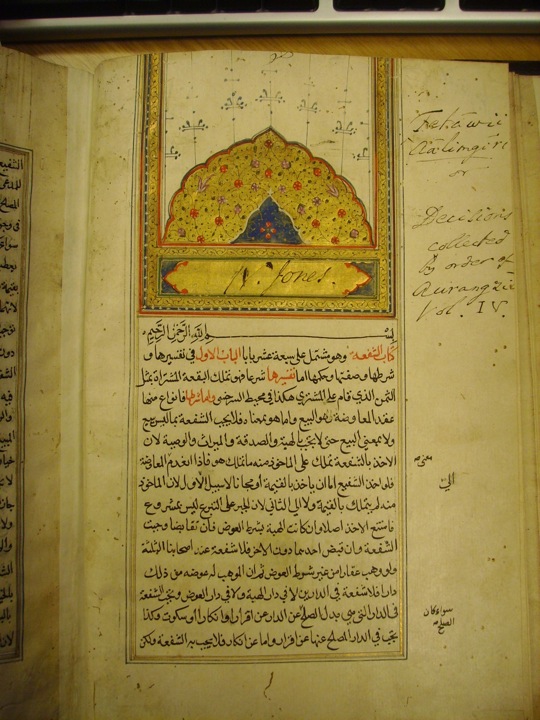 Fetawii
Aalimgiri
or
Decisions
collected
by order of
Aurangzib
Vol. IV.
W. Jones.
بسم الله الرحمن الرحيم
كتاب الشفعة وهو مشتمل على سبعة عشر بابا الباب الاول فى تفسيرها و
شرطها وصفتها وحكمها اما تفسيرها شرعا فهو تملك البقعة المشتراة بمثل
الثمن الذى قام على المشترى هكذا فى محيط السرخسى واما شرطها فانواع منها
عقد المعاوضة وهو البيع او ما هو بمعناه فلا يجب الشفعة بما ليس ببيع
ولا بمعنى البيع حتى لا يجب بالهبة والصدقة والميراث والوصية لان
الاخذ بالشفعة تملك على الماخوذ منه ما تملك هو فاذا انعدم المعاوضة
فلو اخذ الشفيع اما ان ياخذ بالقيمة او مجانا لا سبيل الى الاول لان الماخوذ
منه لم يتملك بالقيمة ولا الى الثانى لان الجبر على التبرع ليس بمشروع
فامتنع الاخذ اصلا وان كانت الهبة بشرط العوض فان تقابضا وجبت
الشفعة وان قبض احدهما دون الاخر فلا شفعة عند اصحابنا الثلثة
ولو وهب عقارا من غير شرط العوض ثم ان الموهوب له عوضه من ذلك
دارا فلا شفعة فى الدارين لا فى دار الهبة ولا فى دار العوض ويجب الشفعة
فى الدار التى هى بدل الصلح عن الدار عن اقرار او انكار او سكوت وكذا
يجب فى الدار المصالح عنها عن اقرار واما عن انكار فلا يجب به الشفعة ولكن
سواء كان
الصلح